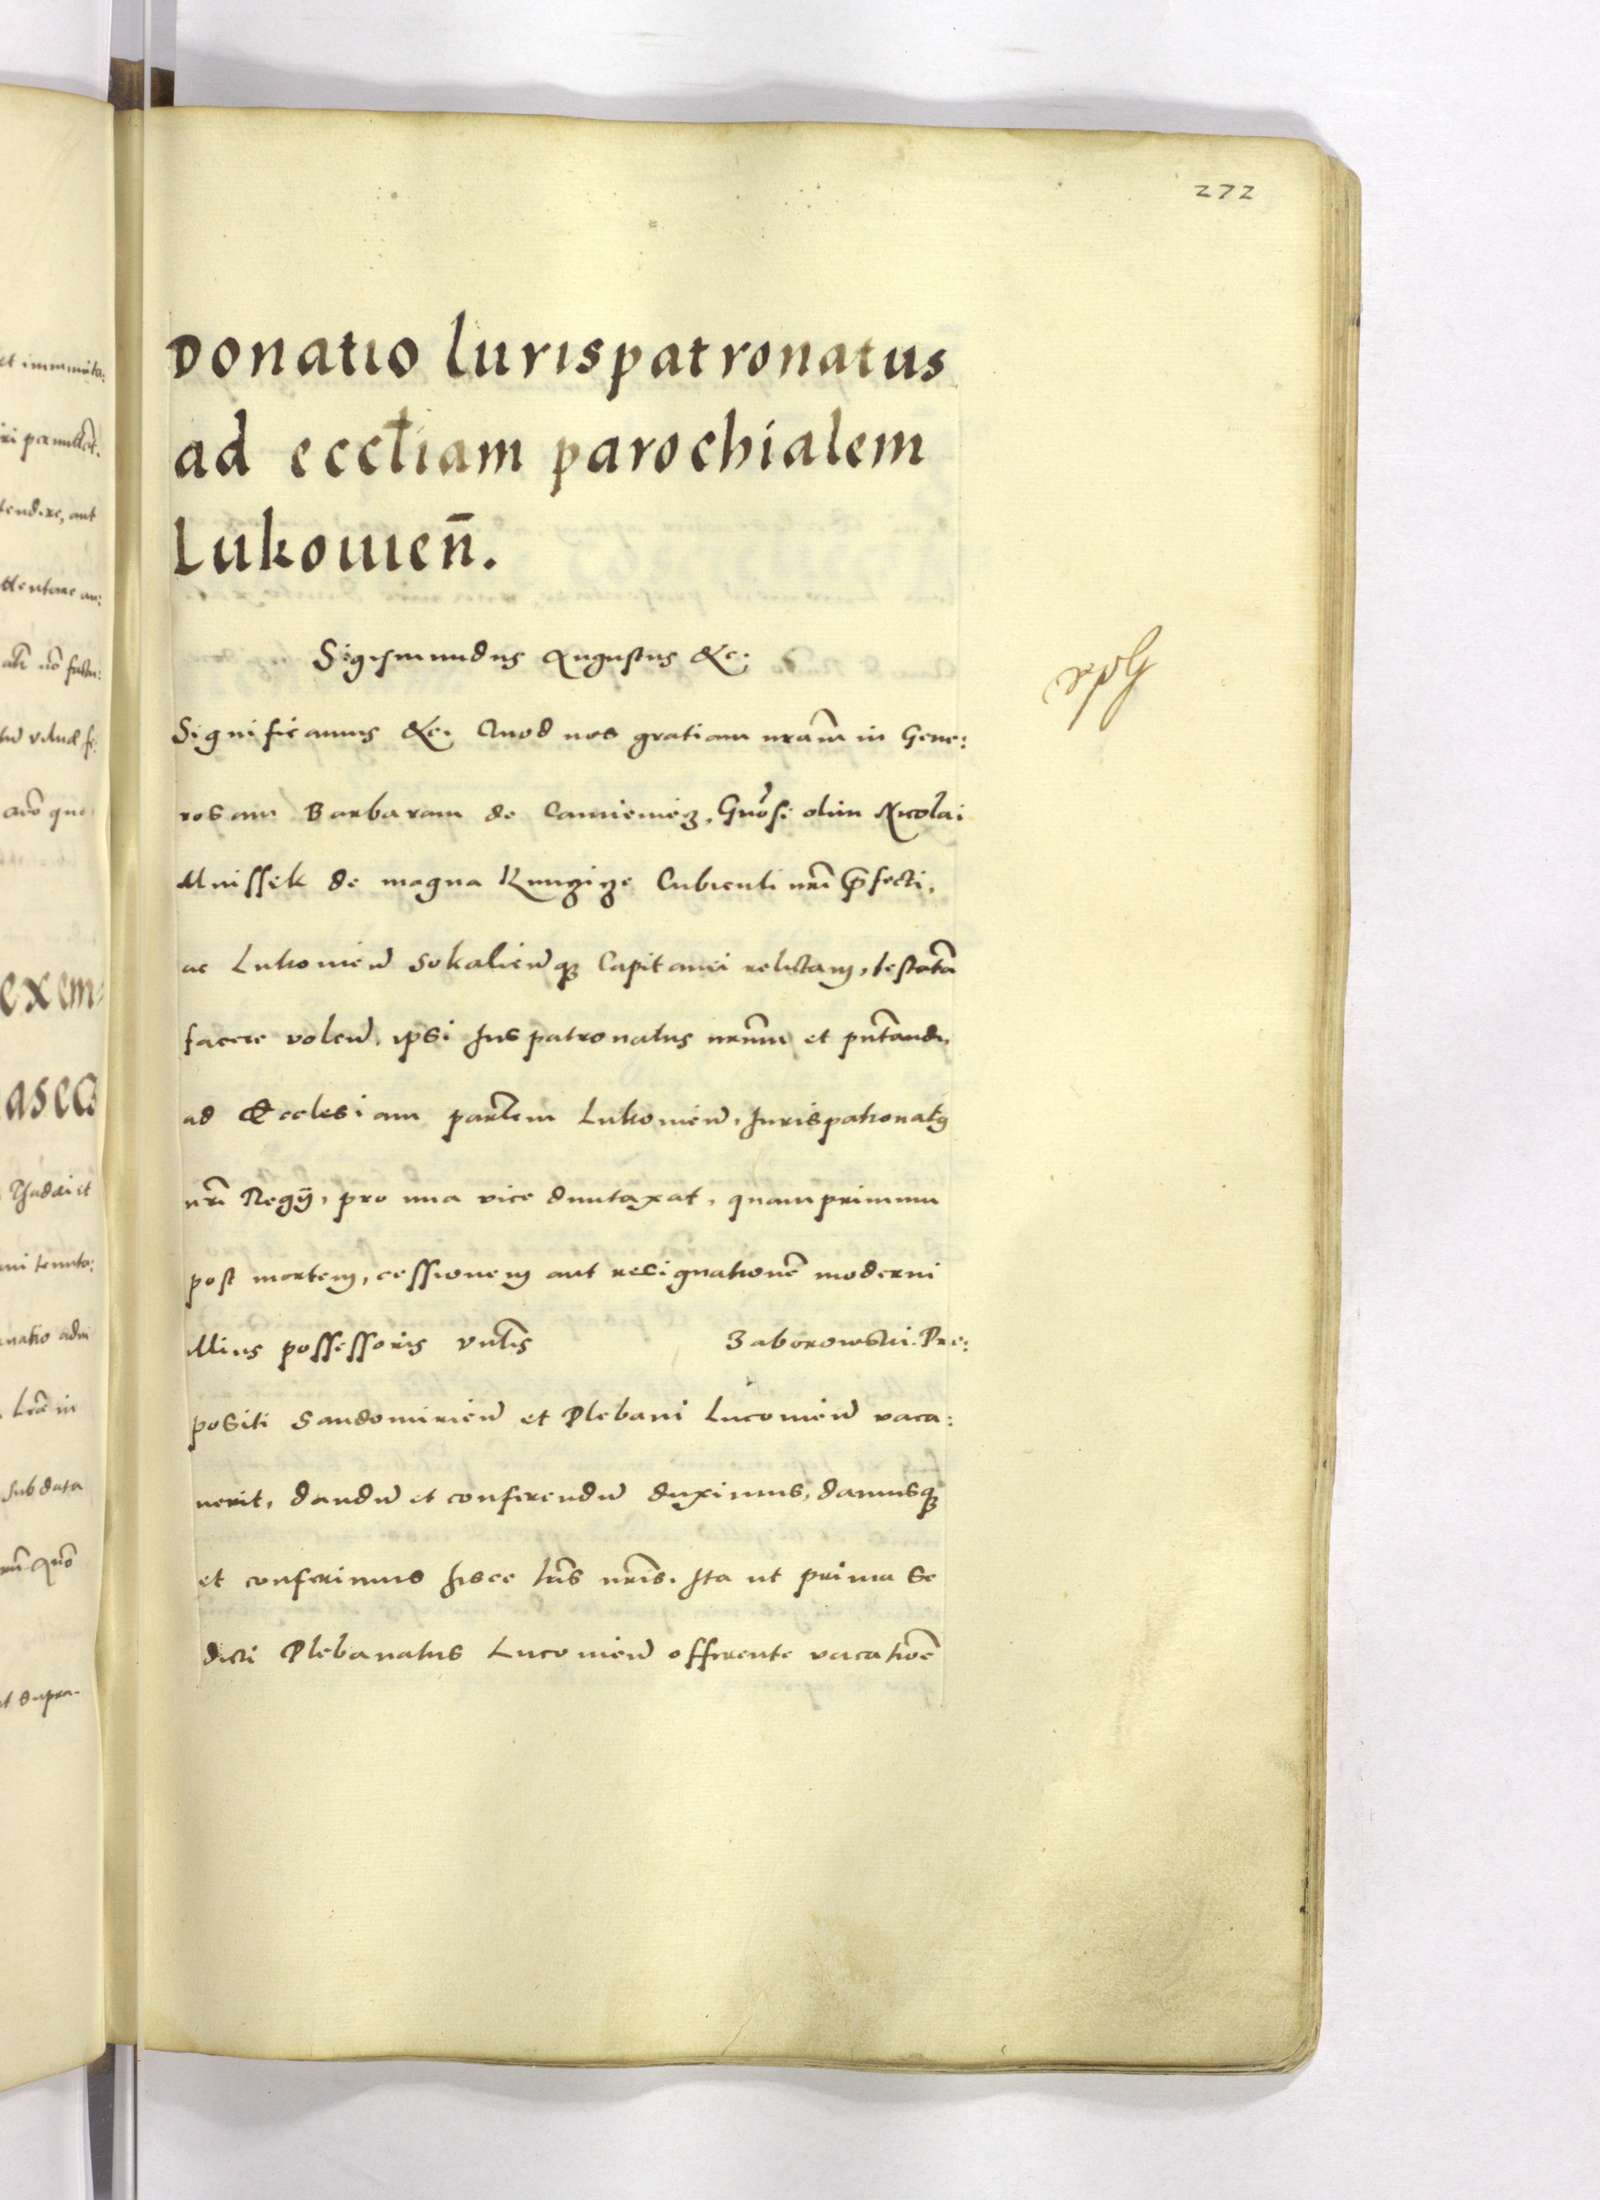 272
Donatio Iurispatronatus
ad eccl̃iam parochialem
Lukouien̄.
Sigismundus Augustus &c.
Significamus &c. Quod nos gratiam nr̃am in Gene:
rosam Barbaram de Camieniez, Gn̄osi olim Nicolai
Mnissek de magna Kunczicze Cubiculi nr̃i P̃fecti,
ac Lukouien̄ Sokalien̄ q꜄ Capitanei relictam, testatã
facere volen̄, ipsi Jus patronatus nr̃um et pñtandi,
ad Ecclesiam par̃lem Lukouien̄, Jurispatronatꝰ
nr̃i Regij, pro una vice duntaxat, quamprimum
post mortem, cessionem aut resignationẽ moderni
illius possessoris Vñlis Zaborowski Pre:
positi Sandomirien̄ et Plebani Lucouien̄ vaca:
uerit, dandũ et conferendũ duximus, damusq꜄
et conferimus hisce lr̃is nr̃is. Ita ut prima se
dicti Plebanatus Lucouien̄ offerente vacatiõe
et immunita:
tendere, aut
exem:
Thaddei et
sub data
et supra.